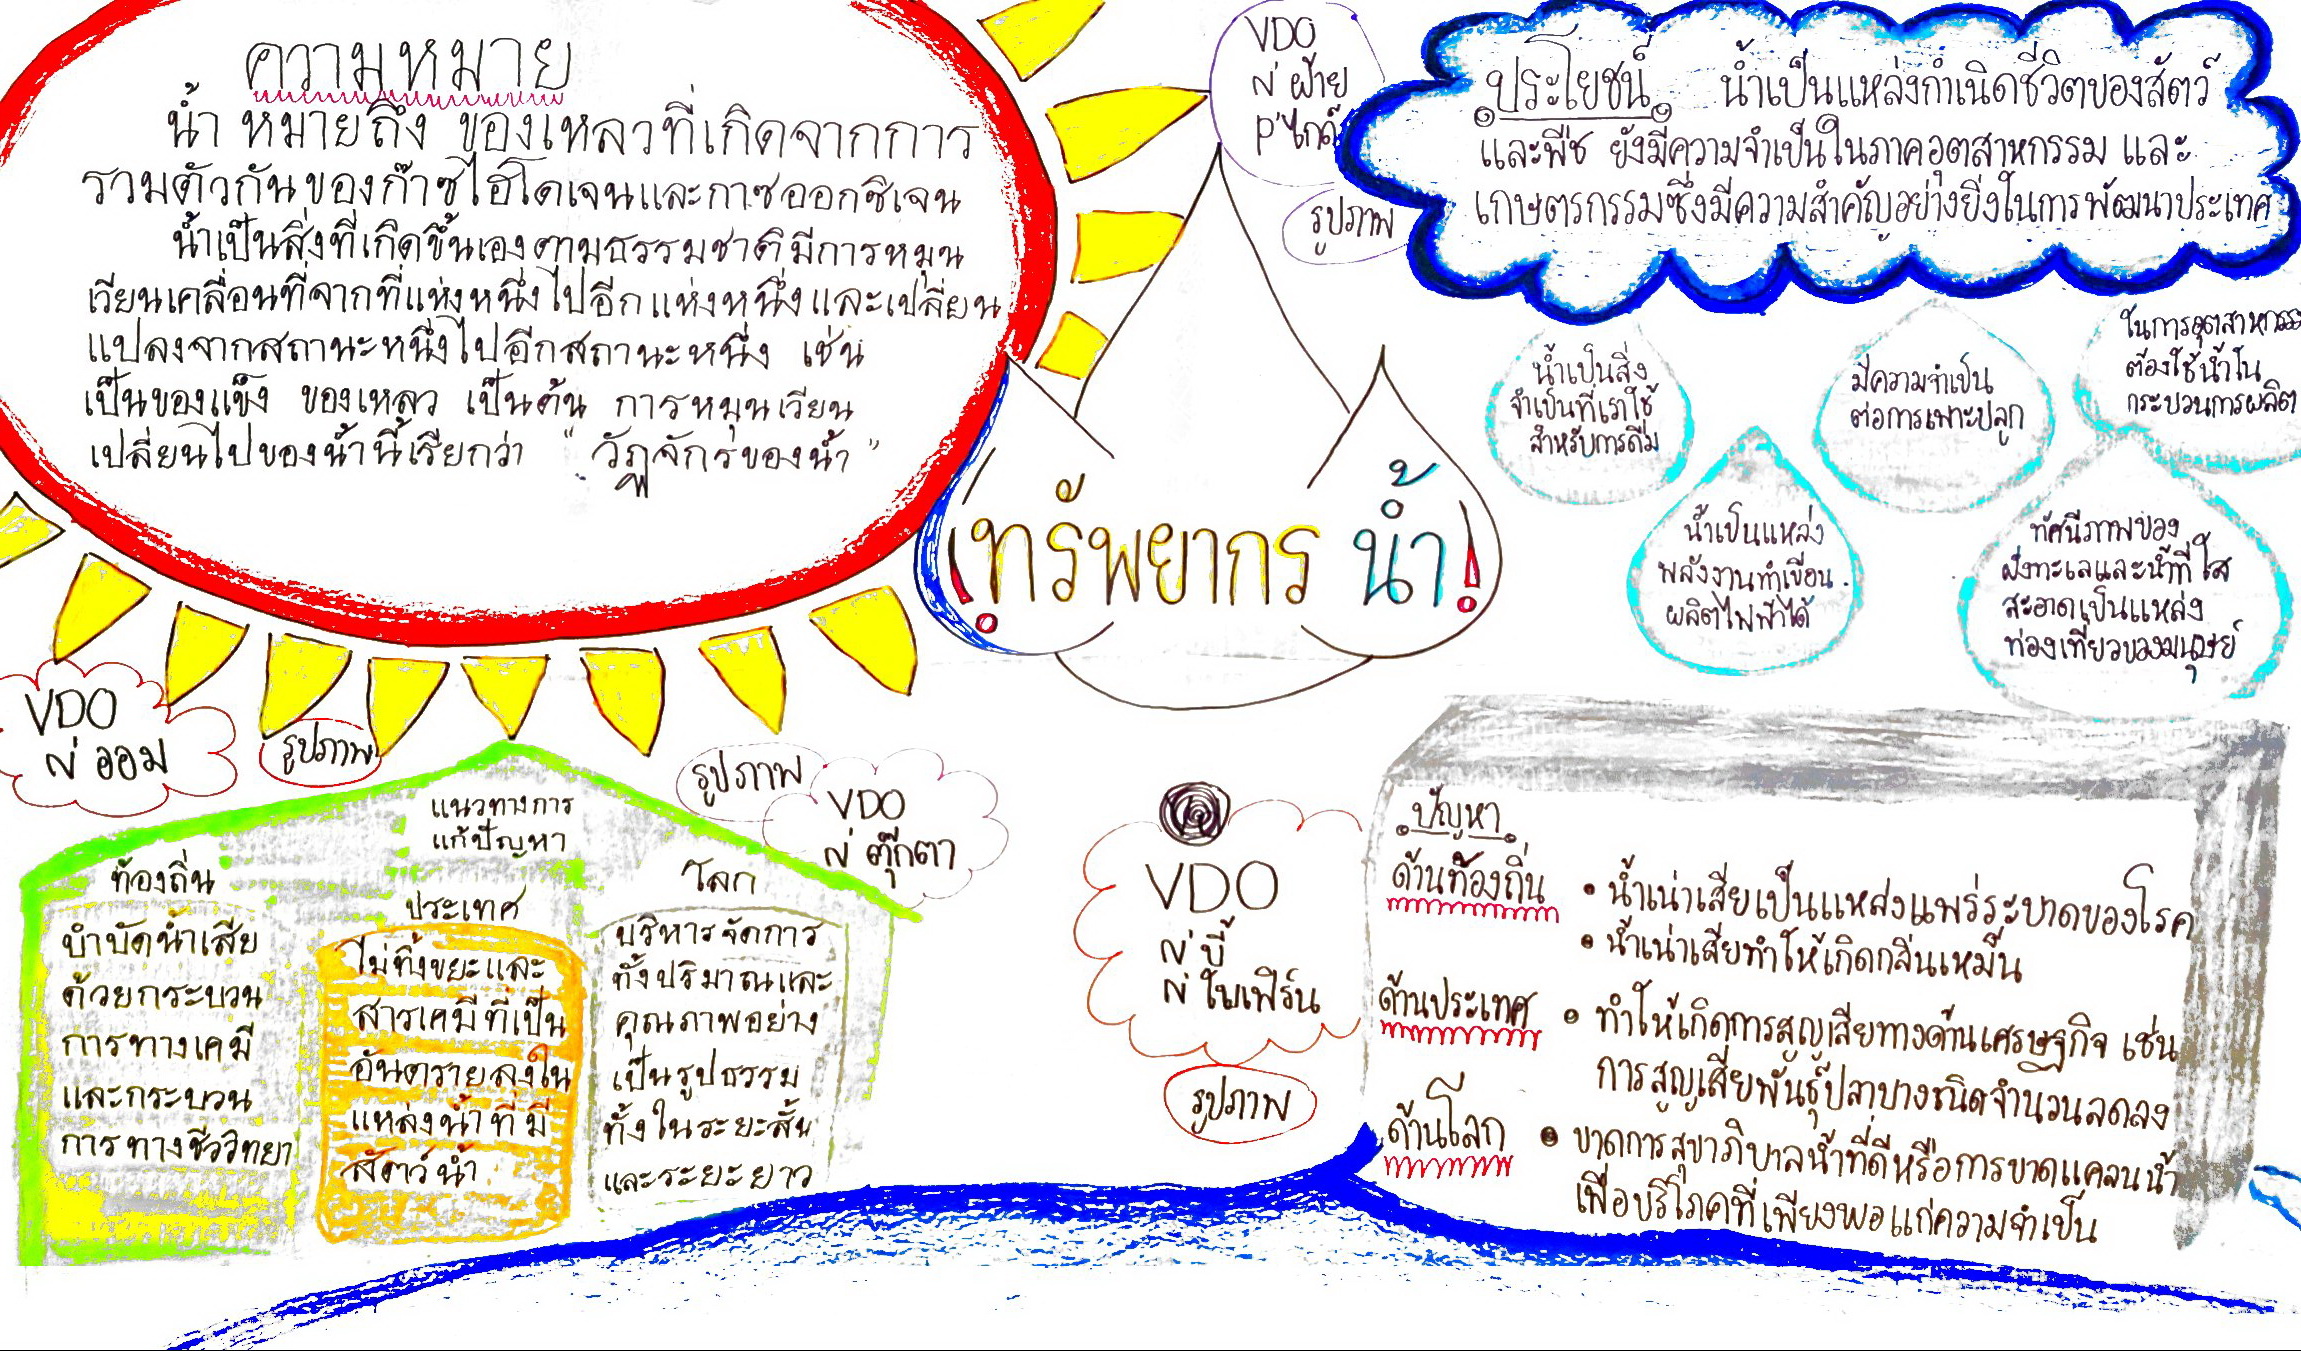 ความหมาย
น้ำ หมายถึง ของเหลวที่เกิดจากการ
รวมตัวกันของก๊าซไฮโดเจนและกาซออกซิเจน
น้ำเป็นสิ่งที่เกิดขึ้นเองตามธรรมชาติมีการหมุน
เวียนเคลื่อนที่จากที่แห่งหนึ่งไปอีกแห่งหนึ่งและเปลี่ยน
แปลงจากสถานะหนึ่งไปอีกสถานะหนึ่ง เช่น
เป็นของแข็ง ของเหลว เป็นต้น การหมุนเวียน
เปลี่ยนไปของน้ำนี้เรียกว่า "วัฏจักรของน้ำ"
VDO
N' ฝ้าย
P'ไกด์
รูปภาพ
ประโยชน์ น้ำเป็นแหล่งกำเนิดชีวิตของสัตว์
และพืช ยังมีความจำเป็นในภาคอุตสาหกรรม และ
เกษตรกรรมซึ่งมีความสำคัญอย่างยิ่งในการพัฒนาประเทศ
น้ำเป็นสิ่ง
จำเป็นที่เราใช้
สำหรับการดื่ม
มีความจำเป็น
ต่อการเพาะปลูก
ในการอุตสาหกรร
ต้องใช้น้ำใน
กระบวนการผลิต
น้ำเป็นแหล่ง
พลังงานทำเขื่อน
ผลิตไฟฟ้าได้
ทัศนีภาพของ
ฝั่งทะเลและน้ำที่ใส
สะอาดเป็นแหล่ง
ท่องเที่ยวของมนุษย์
!ทรัพยากร น้ำ!
VDO
N' ออม
รูปภาพ
รูปภาพ
VDO
N' ตุ๊กตา
แนวทางการ
แก้ปัญหา
ท้องถิ่น
บำบัดน้ำเสีย
ด้วยกระบวน
การทางเคมี
และกระบวน
การทางชีววิทยา
ประเทศ
ไม่ทิ้งขยะและ
สารเคมีที่เป็น
อันตรายลงใน
แหล่งน้ำที่มี
สัตว์น้ำ
โลก
บริหารจัดการ
ทั้งปริมาณและ
คุณภาพอย่าง
เป็นรูปธรรม
ทั้งในระยะสั้น
และระยะยาว
VDO
N' บี้
N' ใบเฟิร์น
รูปภาพ
ปัญหา
ด้านท้องถิ่น • น้ำเน่าเสียเป็นแหล่งแพร่ระบาดของโรค
• น้ำเน่าเสียทำให้เกิดกลิ่นเหม็น
ด้านประเทศ • ทำให้เกิดการสูญเสียทางด้านเศรษฐกิจ เช่น
การสูญเสียพันธุ์ปลาบางชนิดจำนวนลดลง
ด้านโลก • ขาดการสุขาภิบาลน้ำที่ดีหรือการขาดแคลนน้ำ
เพื่อบริโภคที่เพียงพอแก่ความจำเป็น